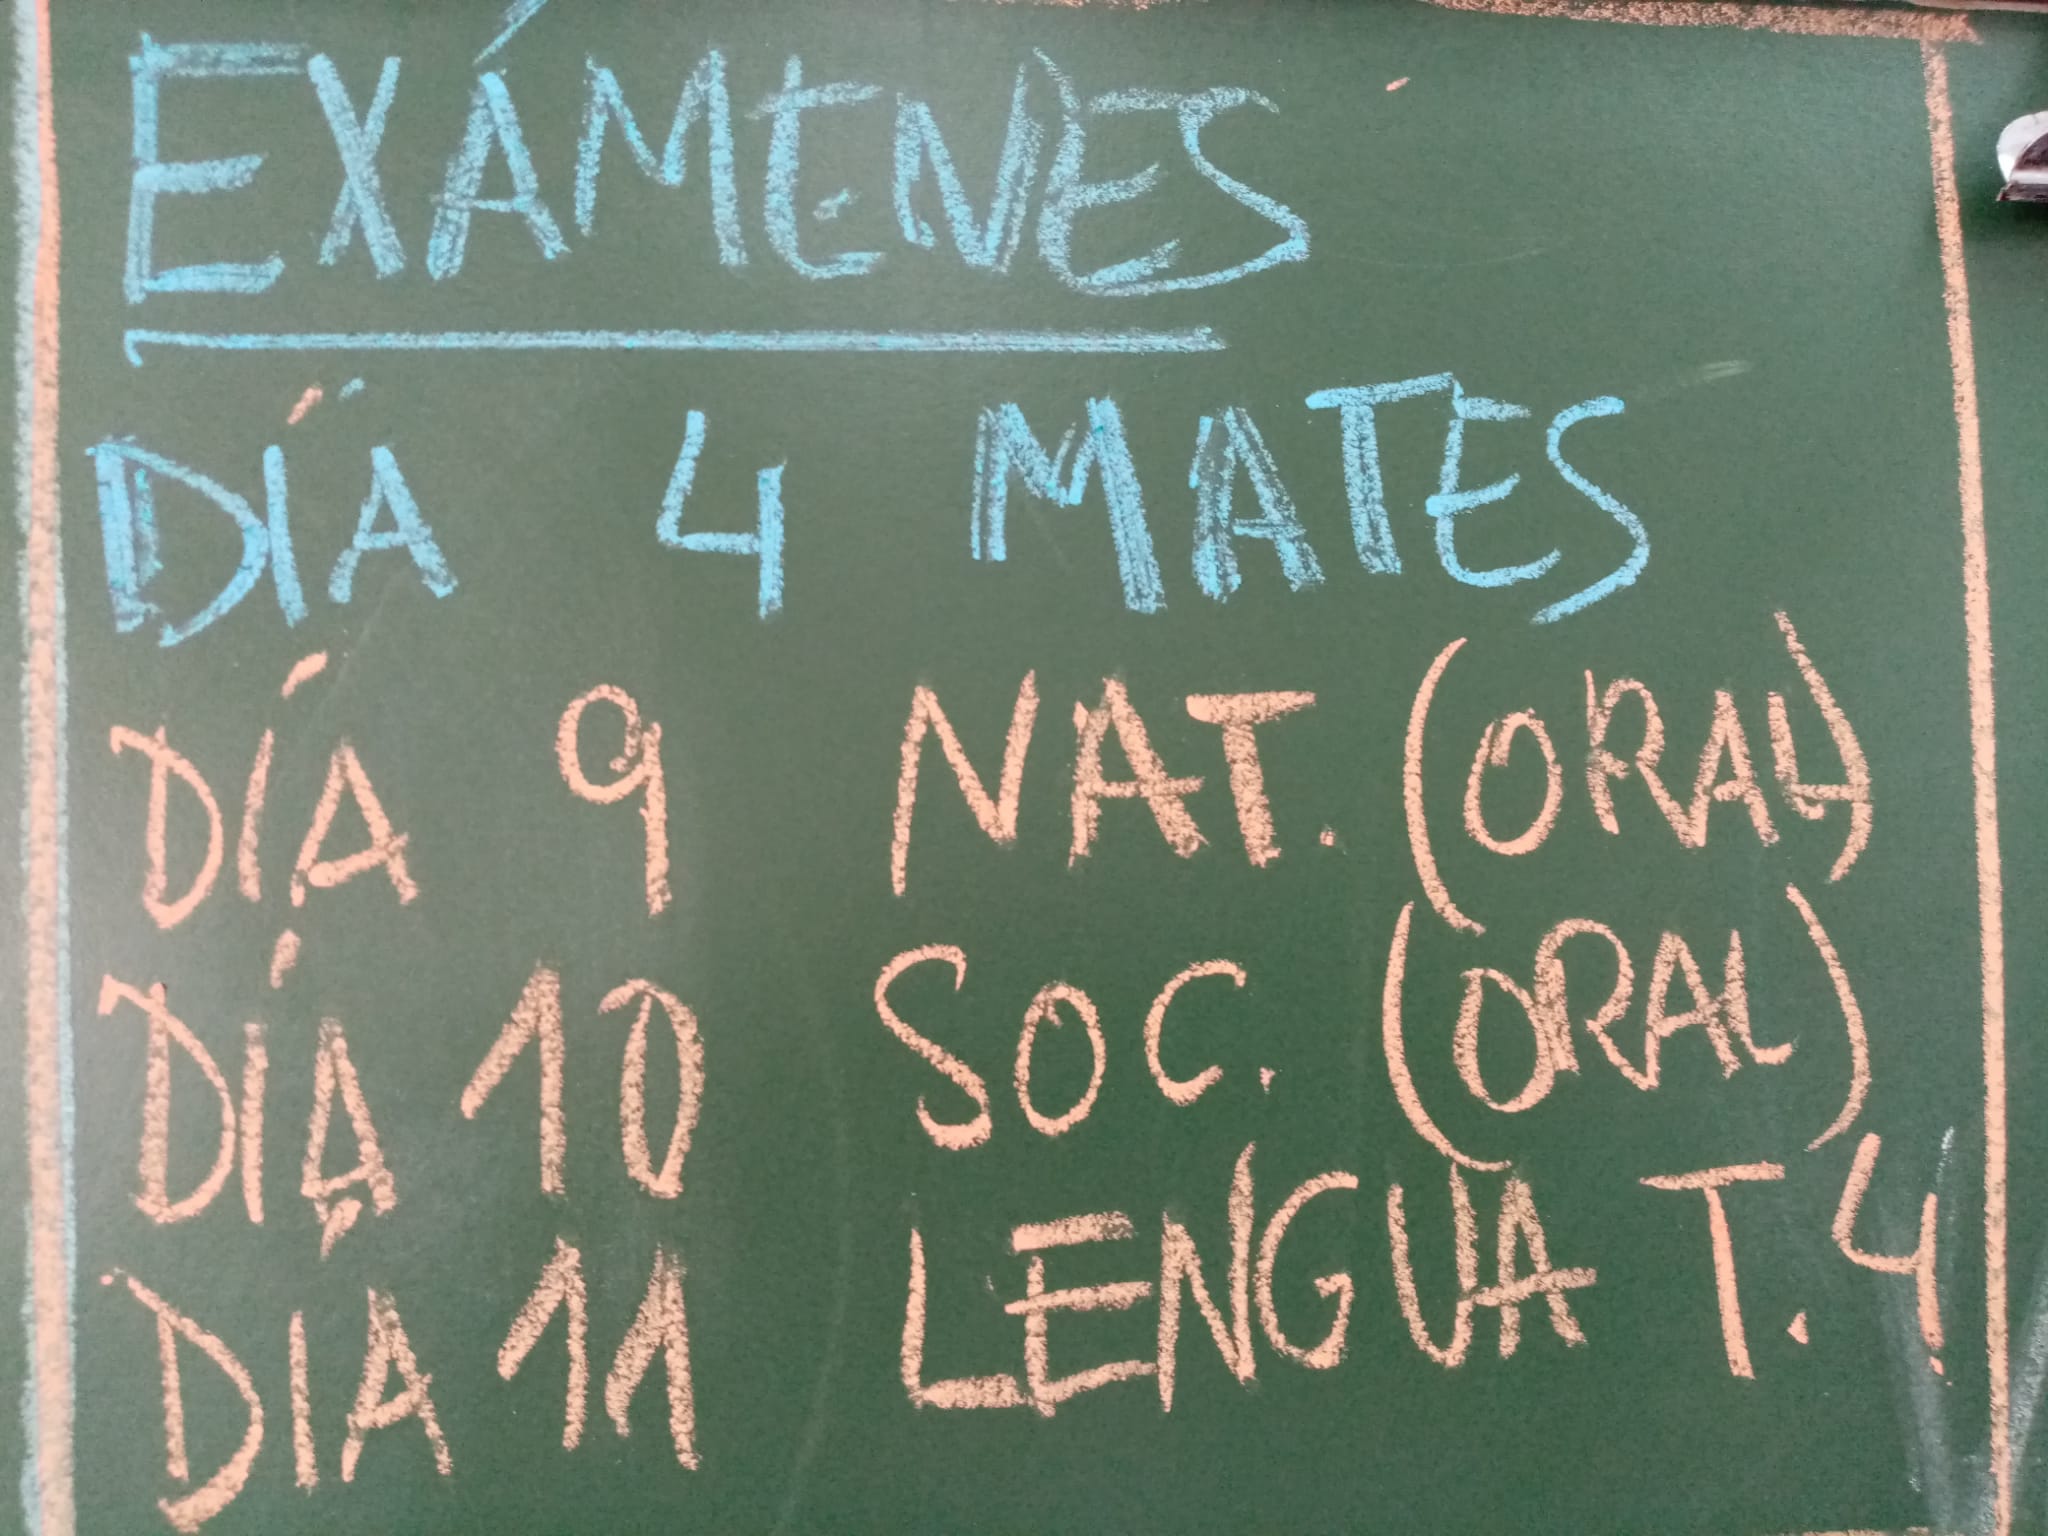 EXÁMENES
DÍA 4 MATES
DÍA 9 NAT. (ORAL)
DÍA 10 SOC. (ORAL)
DÍA 11 LENGUA T. 4